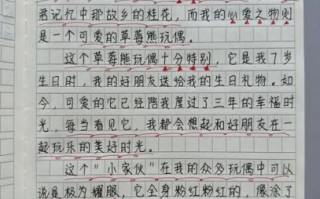 君记忆中那故乡的桂花，而我的心爱之物则
是一个可爱的草莓熊玩偶。
这个草莓熊玩偶十分特别，它是我7岁
生日时，我的好朋友送给我的生日礼物。如
今，可爱的它已经陪我度过了三年的幸福时
光，每当看见它，我都会想起和好朋友在一
起玩乐的美好时光。
这个“小家伙”在我的众多玩偶中可以
说是极为耀眼。它全身粉红粉红的，像涂了